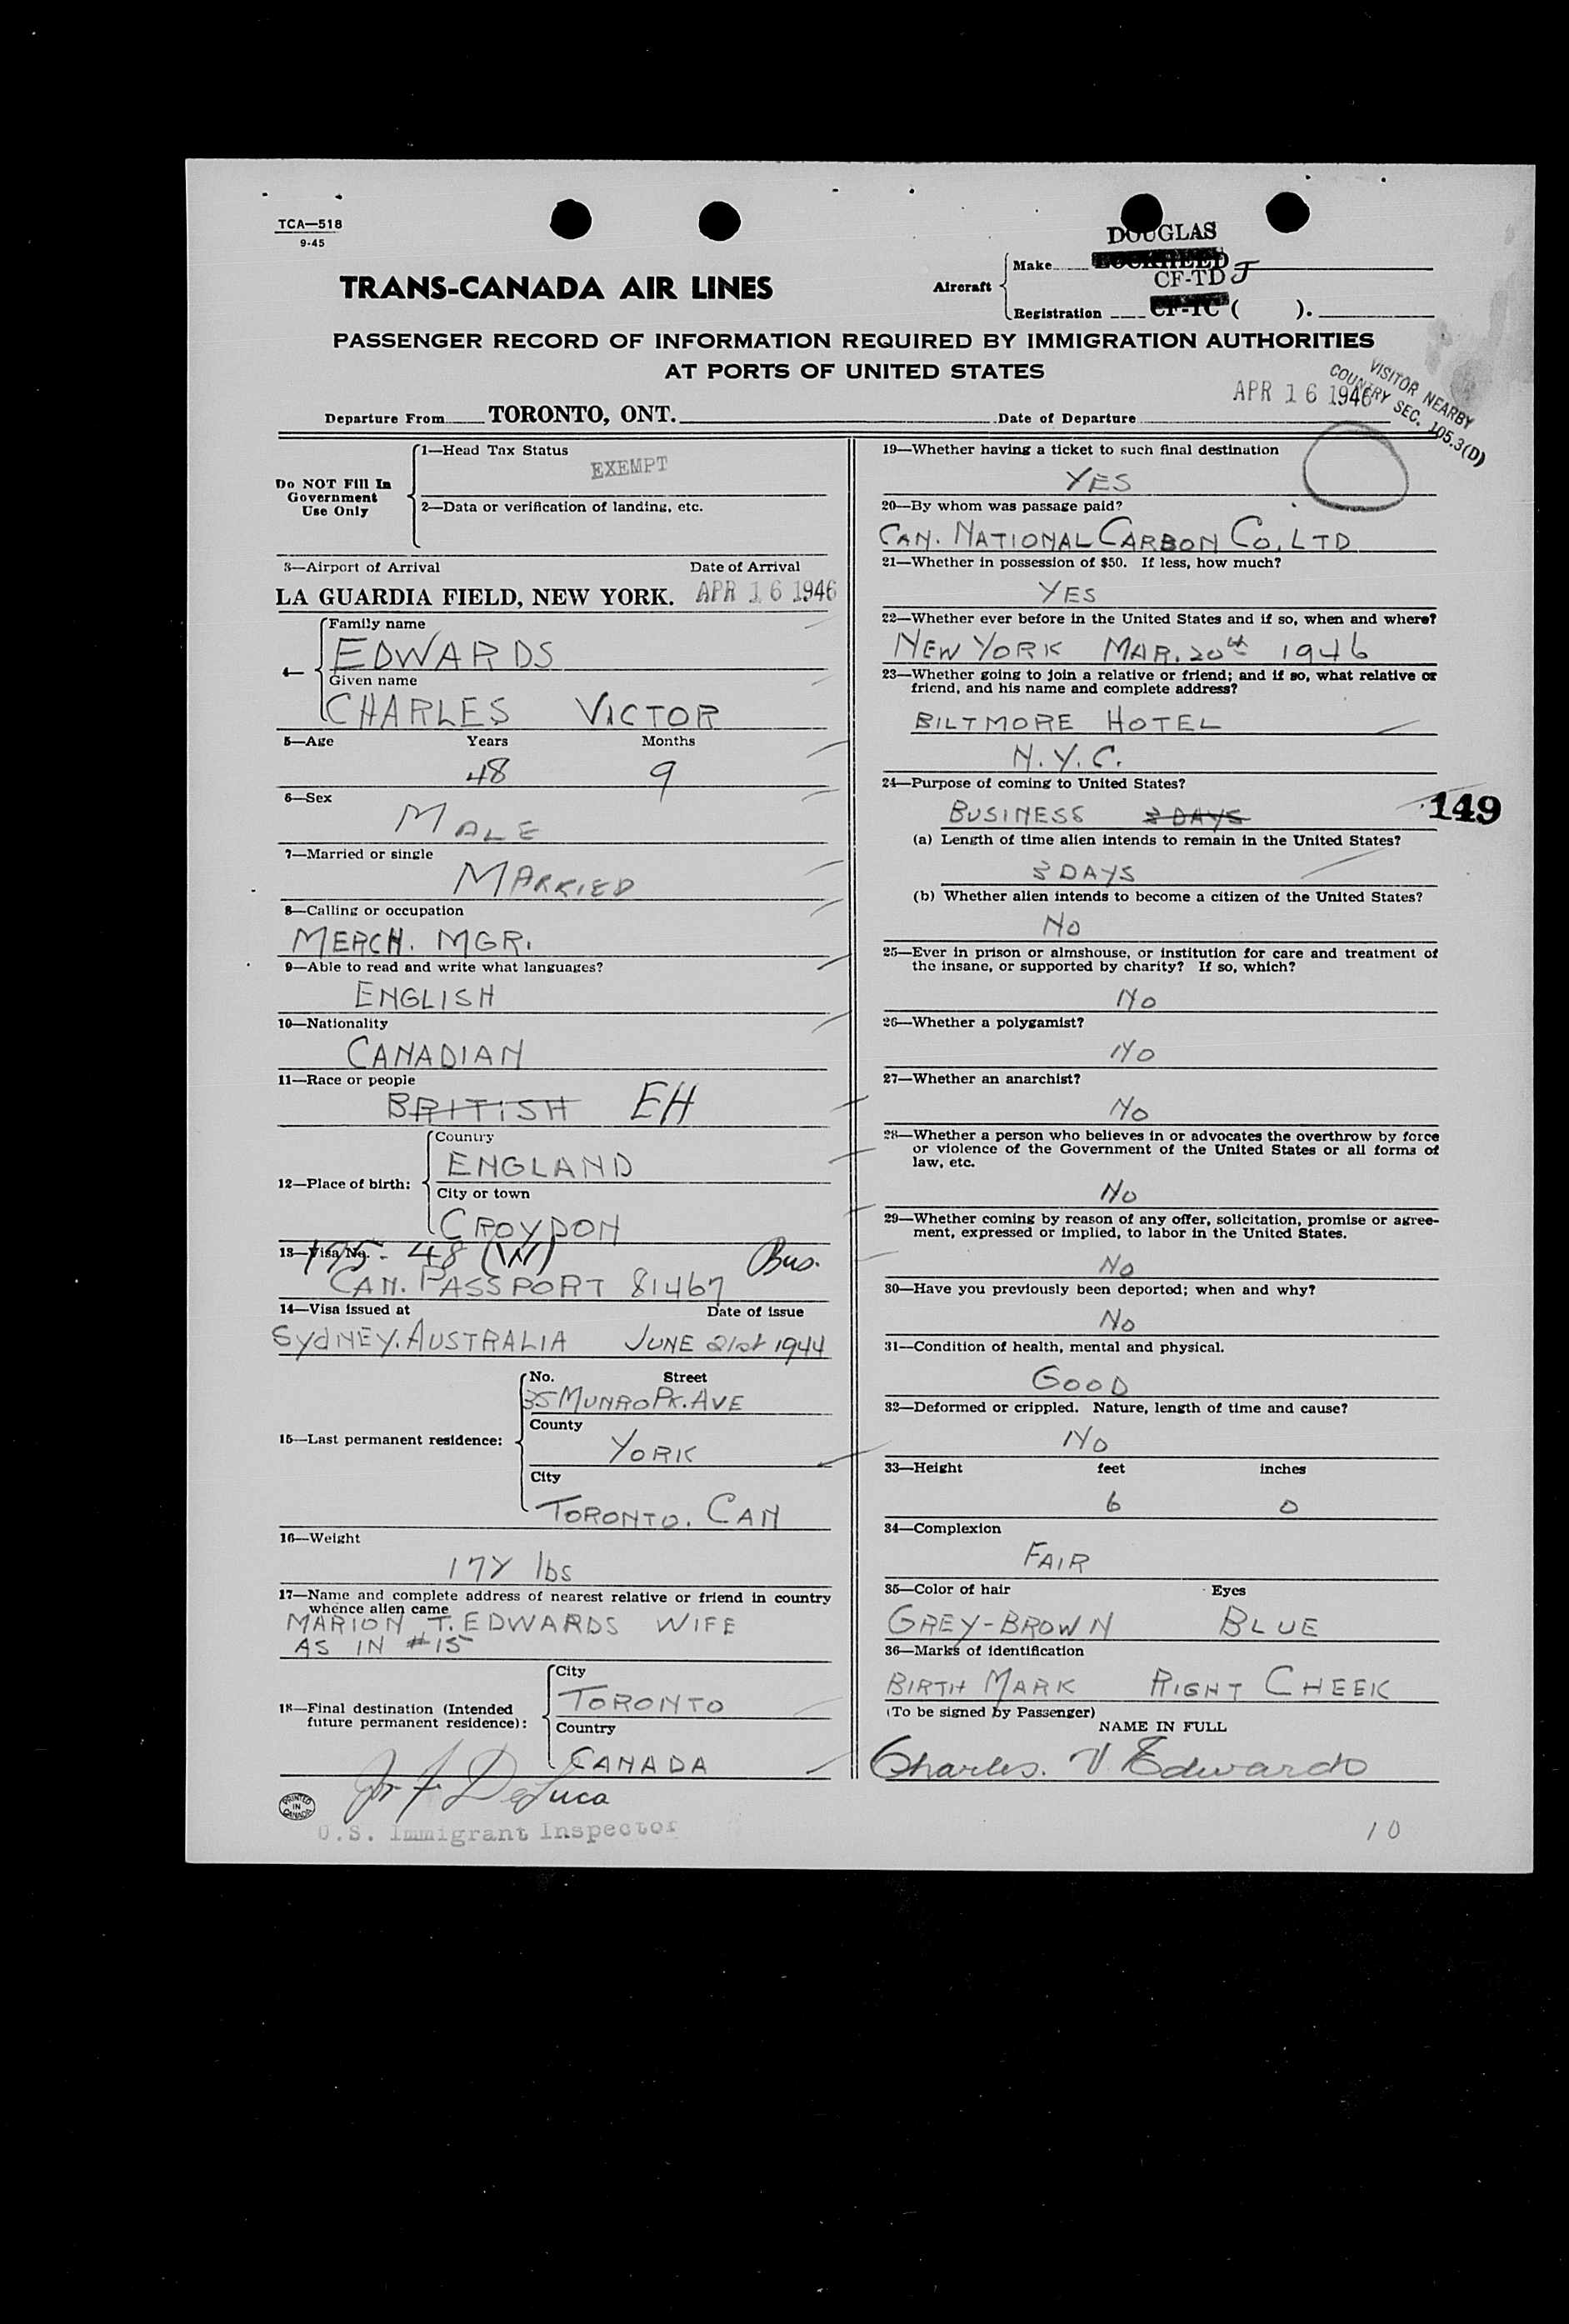 TCA—518
9-45
TRANS-CANADA AIR LINES
Aircraft
DOUGLAS
Make LOCKHEED
CF-TDJ
Registration CF-TC ( ).
PASSENGER RECORD OF INFORMATION REQUIRED BY IMMIGRATION AUTHORITIES
AT PORTS OF UNITED STATES
VISITOR NEARBY
COUNTRY SEC. 105.3(D)
APR 16 1946
Departure From TORONTO, ONT. Date of Departure
Do NOT Fill In
Government
Use Only
1—Head Tax Status
EXEMPT
2—Data or verification of landing, etc.
3—Airport of Arrival Date of Arrival
LA GUARDIA FIELD, NEW YORK. APR 16 1946
4—
Family name
EDWARDS
Given name
CHARLES VICTOR
5—Age Years Months
48 9
6—Sex
MALE
7—Married or single
MARRIED
8—Calling or occupation
MERCH. MGR.
9—Able to read and write what languages?
ENGLISH
10—Nationality
CANADIAN
11—Race or people
BRITISH EH
12—Place of birth:
Country
ENGLAND
City or town
CROYDON
13—Visa No. 195-48 (W) Bus.
CAN. PASSPORT 81467
14—Visa issued at Date of issue
SYDNEY. AUSTRALIA JUNE 21st 1944
15—Last permanent residence:
No. Street
35 MUNRO PK. AVE
County
YORK
City
TORONTO. CAN
16—Weight
lbs
17—Name and complete address of nearest relative or friend in country
whence alien came
MARION T. EDWARDS WIFE
AS IN #15
18—Final destination (Intended
future permanent residence):
City
TORONTO
Country
CANADA
DeLuca
U.S. Immigrant Inspector
PRINTED
IN
CANADA
19—Whether having a ticket to such final destination
YES
20—By whom was passage paid?
CAN. NATIONAL CARBON CO. LTD
21—Whether in possession of $50. If less, how much?
YES
22—Whether ever before in the United States and if so, when and where?
NEW YORK MAR. 20th 1946
23—Whether going to join a relative or friend; and if so, what relative or
friend, and his name and complete address?
BILTMORE HOTEL
N.Y.C.
24—Purpose of coming to United States?
BUSINESS 3 DAYS
149
(a) Length of time alien intends to remain in the United States?
3 DAYS
(b) Whether alien intends to become a citizen of the United States?
NO
25—Ever in prison or almshouse, or institution for care and treatment of
the insane, or supported by charity? If so, which?
NO
26—Whether a polygamist?
NO
27—Whether an anarchist?
NO
28—Whether a person who believes in or advocates the overthrow by force
or violence of the Government of the United States or all forms of
law, etc.
NO
29—Whether coming by reason of any offer, solicitation, promise or agree-
ment, expressed or implied, to labor in the United States.
NO
30—Have you previously been deported; when and why?
NO
31—Condition of health, mental and physical.
GOOD
32—Deformed or crippled. Nature, length of time and cause?
NO
33—Height feet inches
6 0
34—Complexion
FAIR
35—Color of hair Eyes
GREY-BROWN BLUE
36—Marks of identification
BIRTH MARK RIGHT CHEEK
(To be signed by Passenger)
NAME IN FULL
Charles. V. Edwards
10